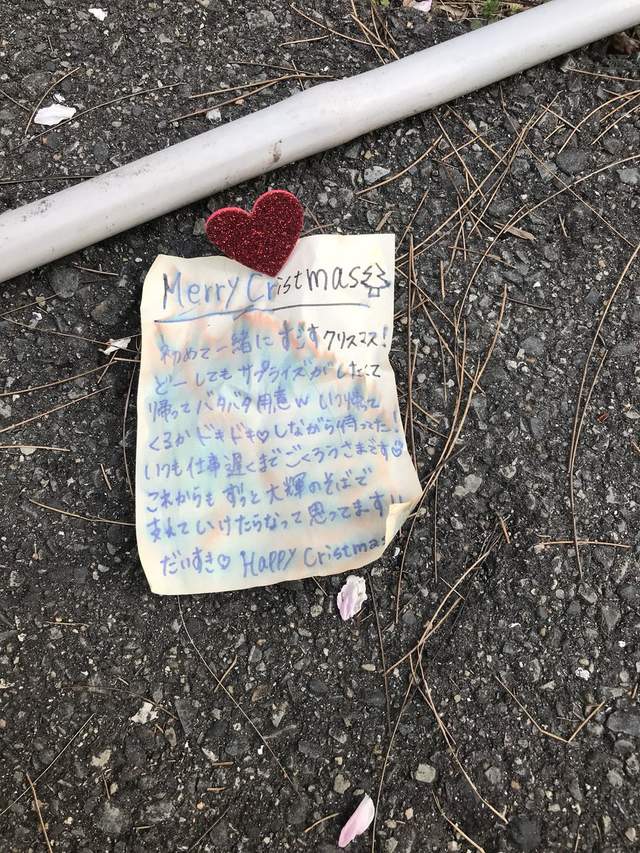 Merry Cristmas
初めて一緒にすごすクリスマス!
どーしてもサプライズがしたくて
帰ってバタバタ用意w いつ帰って
くるかドキドキ♡しながら待ってた!
いつも仕事遅くまでごくろうさまです
これからもずっと大輝のそばで
支れていけたらなって思ってます!!
だいすき♡ Happy Cristmas